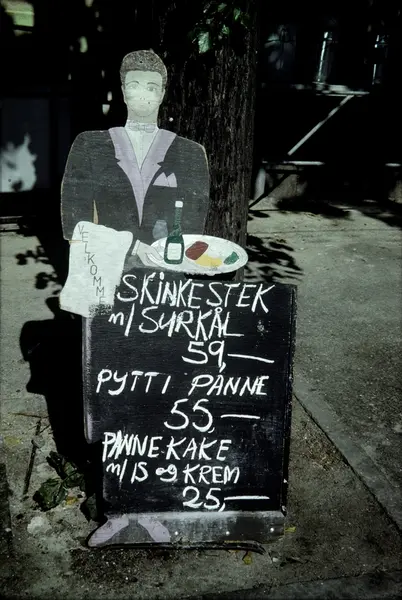 VELKOMMEN
SKINKESTEK
m/SURKÅL
59,—
PYTTI PANNE
55,—
PANNEKAKE
m/IS og KREM
25,—